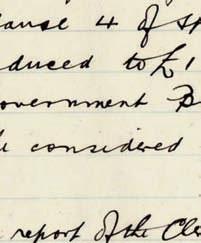 lause 4 of st
educed to £1
overnment B
be considered
report of the Cler